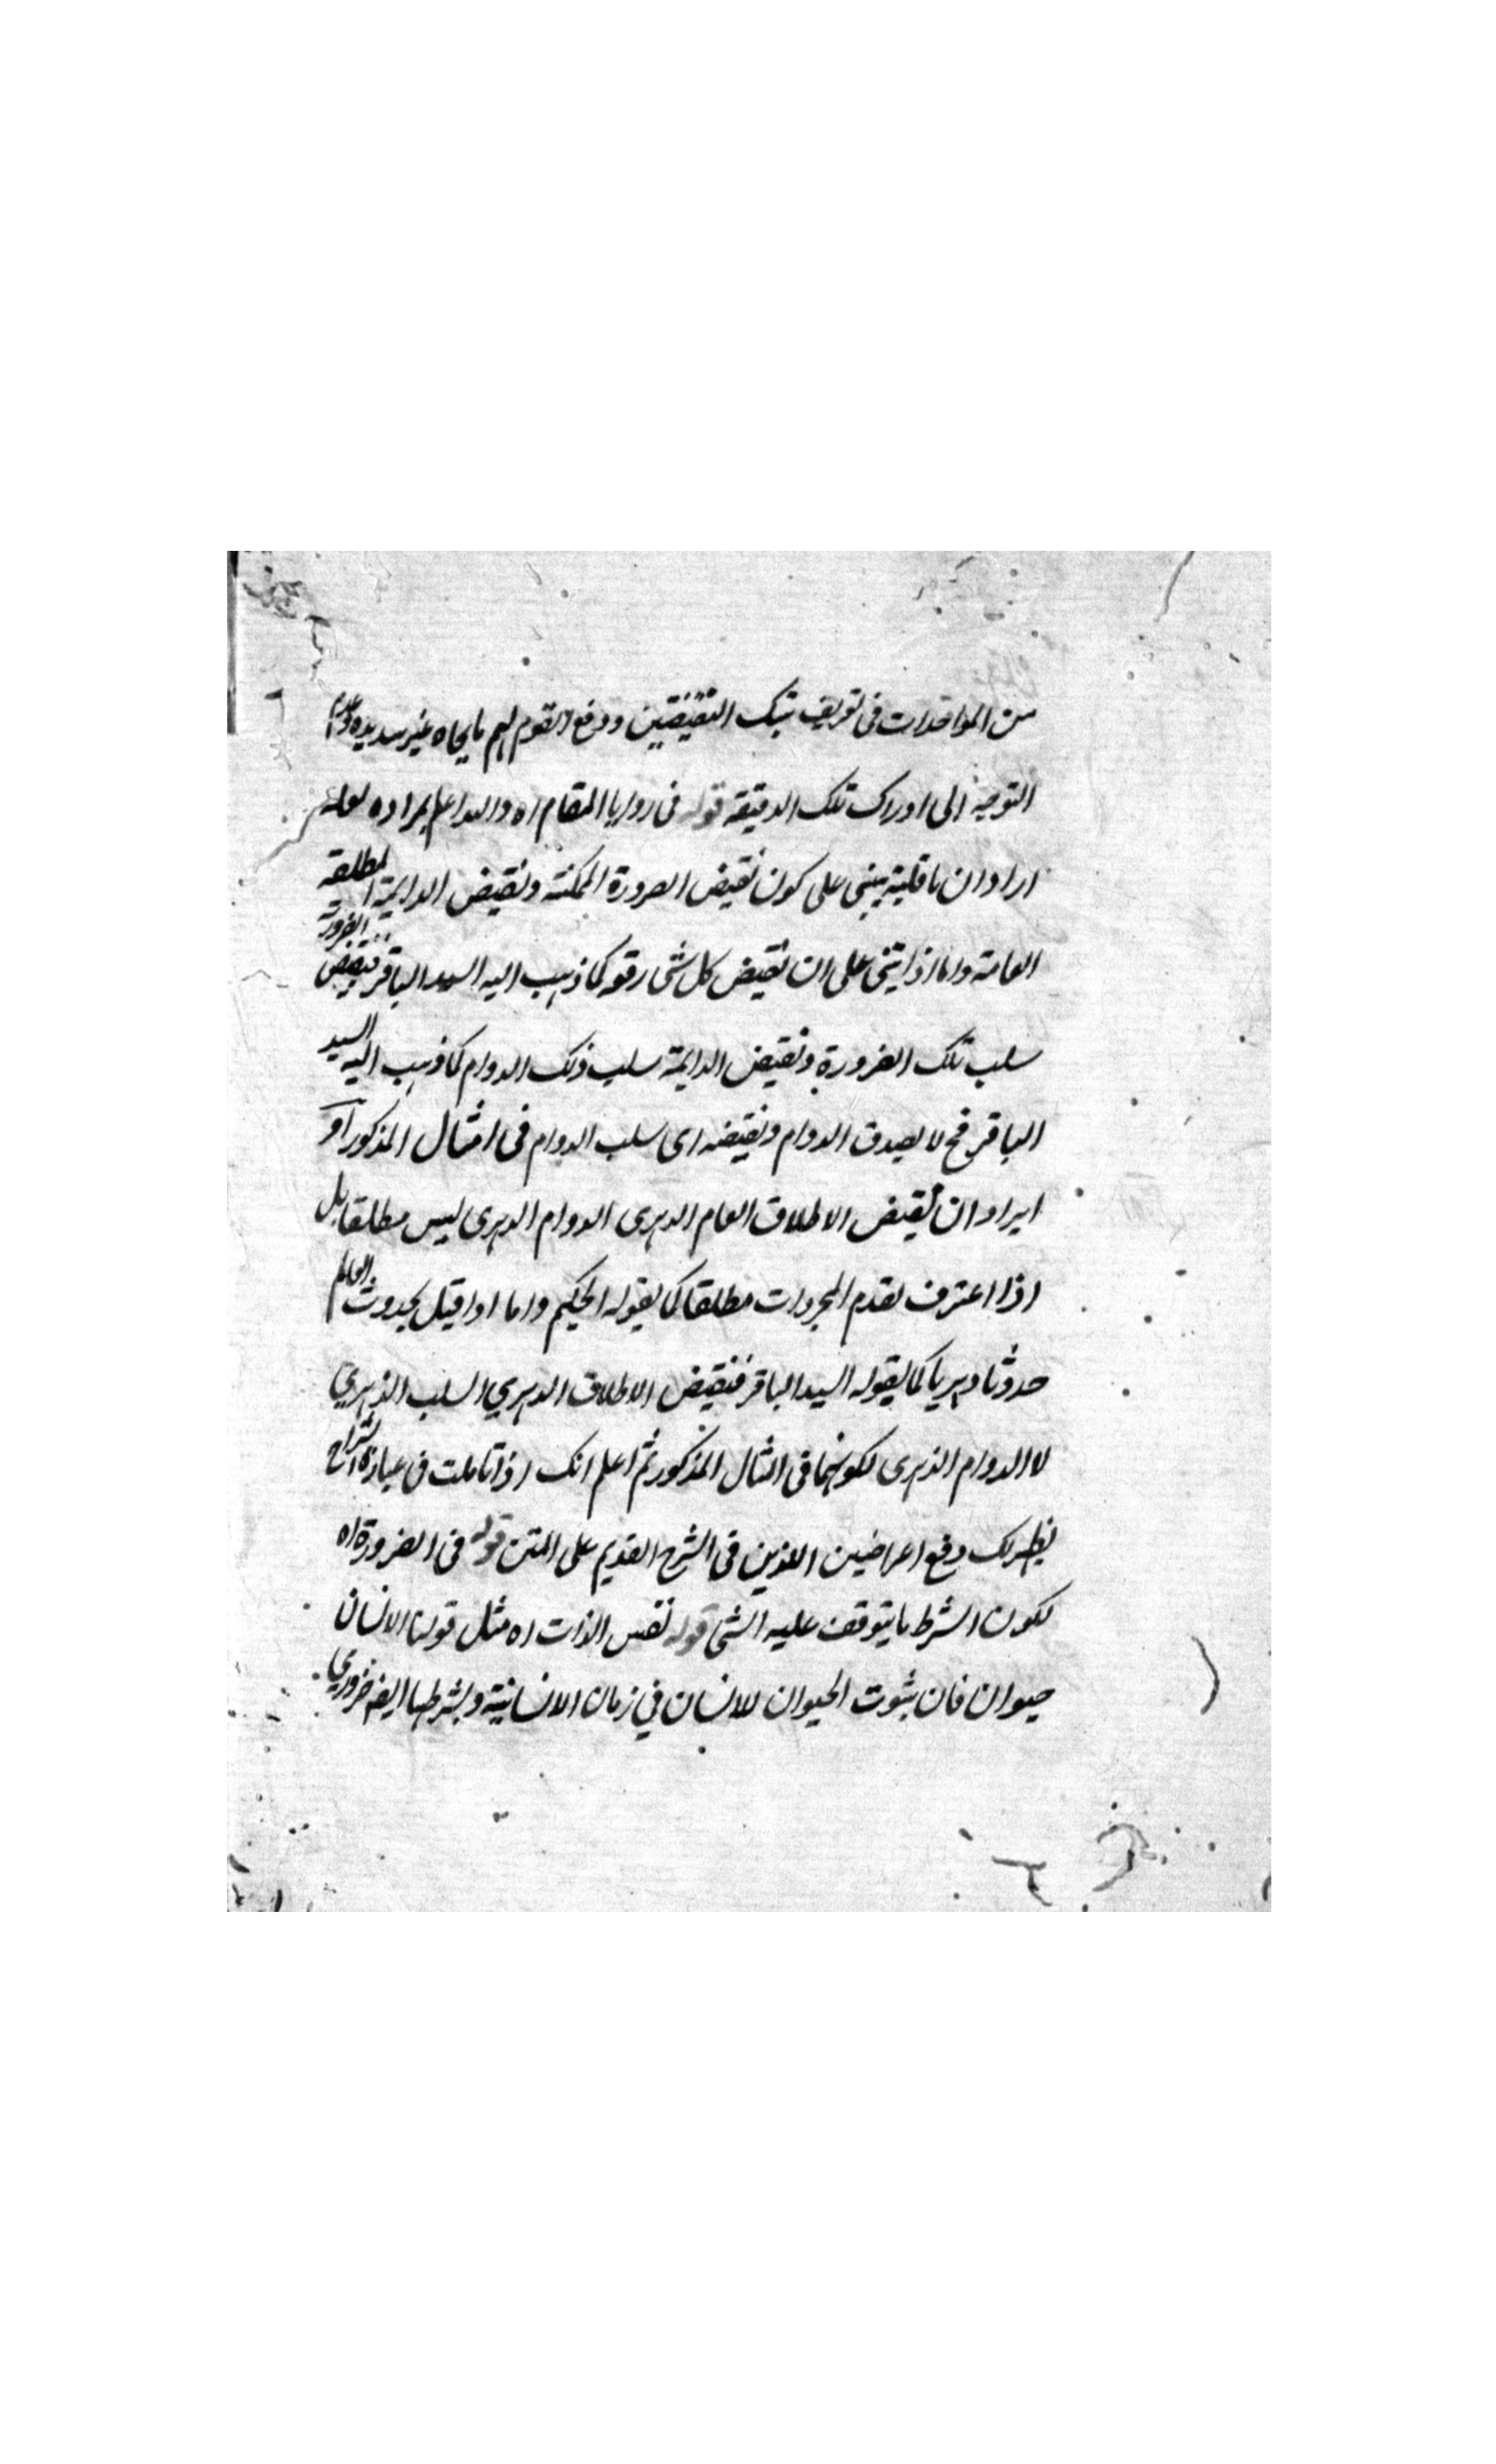 من المواخذات في تعريف تينك النقيضين ودفع القوم لهم بايجاه غير سديدة وعدم
التوجه الى ادراك تلك الدقيقة قوله في زوايا المقام اه والله اعلم بمراده لعله
اراد ان ما قلته يبنى على كون نقيض الضرورة الممكنة ونقيض الدايمة المطلقة
العامة واما اذا بنى على ان نقيض كل شئ رفعه كما ذهب اليه السيد الباقر فنقيض الضرورة
سلب تلك الضرورة ونقيض الدايمة سلب ذلك الدوام كما ذهب اليه السيد
الباقر فح لا يصدق الدوام ونقيضه اى سلب الدوام في امثال المذكور او
ايراد ان نقيض الاطلاق العام الدهرى الدوام الدهرى ليس مطلقا بل
اذا اعترف بقدم المجردات مطلقا كما يقوله الحكيم واما اذا قيل بحدوث العالم
حدوثا دهريا كما يقوله السيد الباقر فنقيض الاطلاق الدهري السلب الدهري
لا الدوام الدهرى لكونهما في المثال المذكور ثم اعلم انك اذا تاملت في عبارة الشراح
يظهر لك دفع اعراضين اللذين في الشرح القديم على المتن قوله في الضرورة اه
لكون الشرط ما يتوقف عليه الشئ قوله نفس الذات اه مثل قولنا الانسان
حيوان فان ثبوت الحيوان للانسان في زمان الانسانية وبشرطها ايضا ضروري